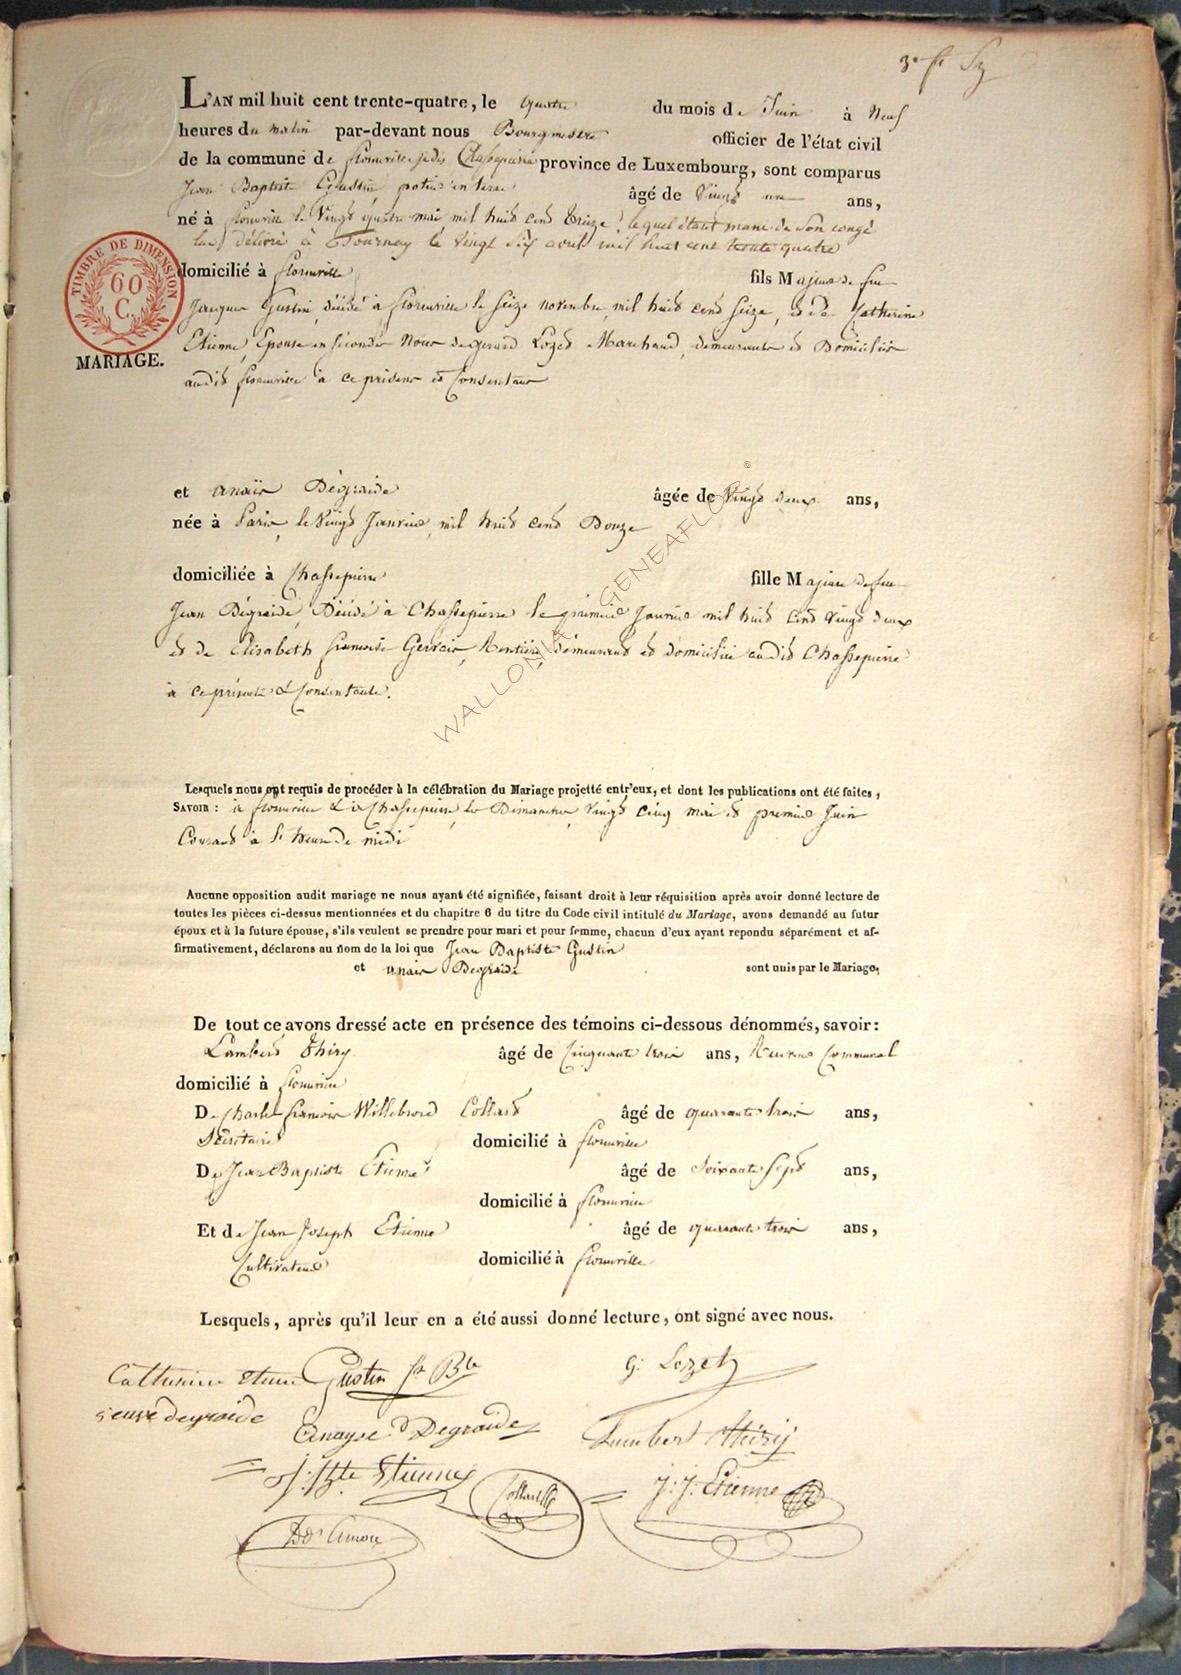 3e
L'AN mil huit cent trente-quatre, le quatre du mois de Juin à Neuf
heures du matin par-devant nous Bourgmestre officier de l'état civil
de la commune de florenville jadis Chassepierre province de Luxembourg, sont comparus
Jean Baptiste Gustin potier en terre âgé de Vingt un ans,
né à florenville le Vingt quatre mai mil huit cent treize, lequel étant muni de son congé
délivré à Tournay le vingt six avril mil huit cent trente quatre
domicilié à florenville fils Majeur de feu
Jacques Gustin, décédé à florenville le seize novembre mil huit cent seize, et de Catherine
Etienne, Epouse en secondes Noces de gerard Lozet Marchand, demeurants et Domiciliés
audit florenville à ce présens et Consentans
TIMBRE DE DIMENSION
60
C.
MARIAGE.
et anaïs Dégraide âgée de Vingt deux ans,
née à Paris, le Vingt Janvier, mil huit cent Douze
domiciliée à Chassepierre fille Majeure de feu
Jean Dégraide, Décédé à Chassepierre le premier Janvier mil huit cent vingt deux
et de Elisabeth françoise Gervais, Rentière, demeurant et domiciliée audit Chassepierre
à ce présente & Consentante.
WALLONIA GENEAFLOR ©
Lesquels nous ont requis de procéder à la célébration du Mariage projetté entr'eux, et dont les publications ont été faites,
SAVOIR : à florenville & à Chassepierre, les Dimanches, Vingt Cinq mai et premier Juin
Courant à l'heure de midi
Aucune opposition audit mariage ne nous ayant été signifiée, faisant droit à leur réquisition après avoir donné lecture de
toutes les pièces ci-dessus mentionnées et du chapitre 6 du titre du Code civil intitulé du Mariage, avons demandé au futur
époux et à la future épouse, s'ils veulent se prendre pour mari et pour femme, chacun d'eux ayant repondu séparément et af-
firmativement, déclarons au nom de la loi que Jean Baptiste Gustin
et anaïs Degraide sont unis par le Mariage,
De tout ce avons dressé acte en présence des témoins ci-dessous dénommés, savoir :
Lambert Thiry âgé de Cinquante trois ans, Receveur Communal
domicilié à florenville
De Charles françois Willebrord Collard âgé de quarante trois ans,
Secrétaire domicilié à florenville
De Jean Baptiste Etienne âgé de Soixante Sept ans,
domicilié à florenville
Et de Jean Joseph Etienne âgé de quarante trois ans,
Cultivateur domicilié à florenville
Lesquels, après qu'il leur en a été aussi donné lecture, ont signé avec nous.
Catherine Etienne Gustin Jn Bte G: Lozet
veuve degraide Anayse Degraide Lambert Thiry
J: Bte Etienne J: J: Etienne